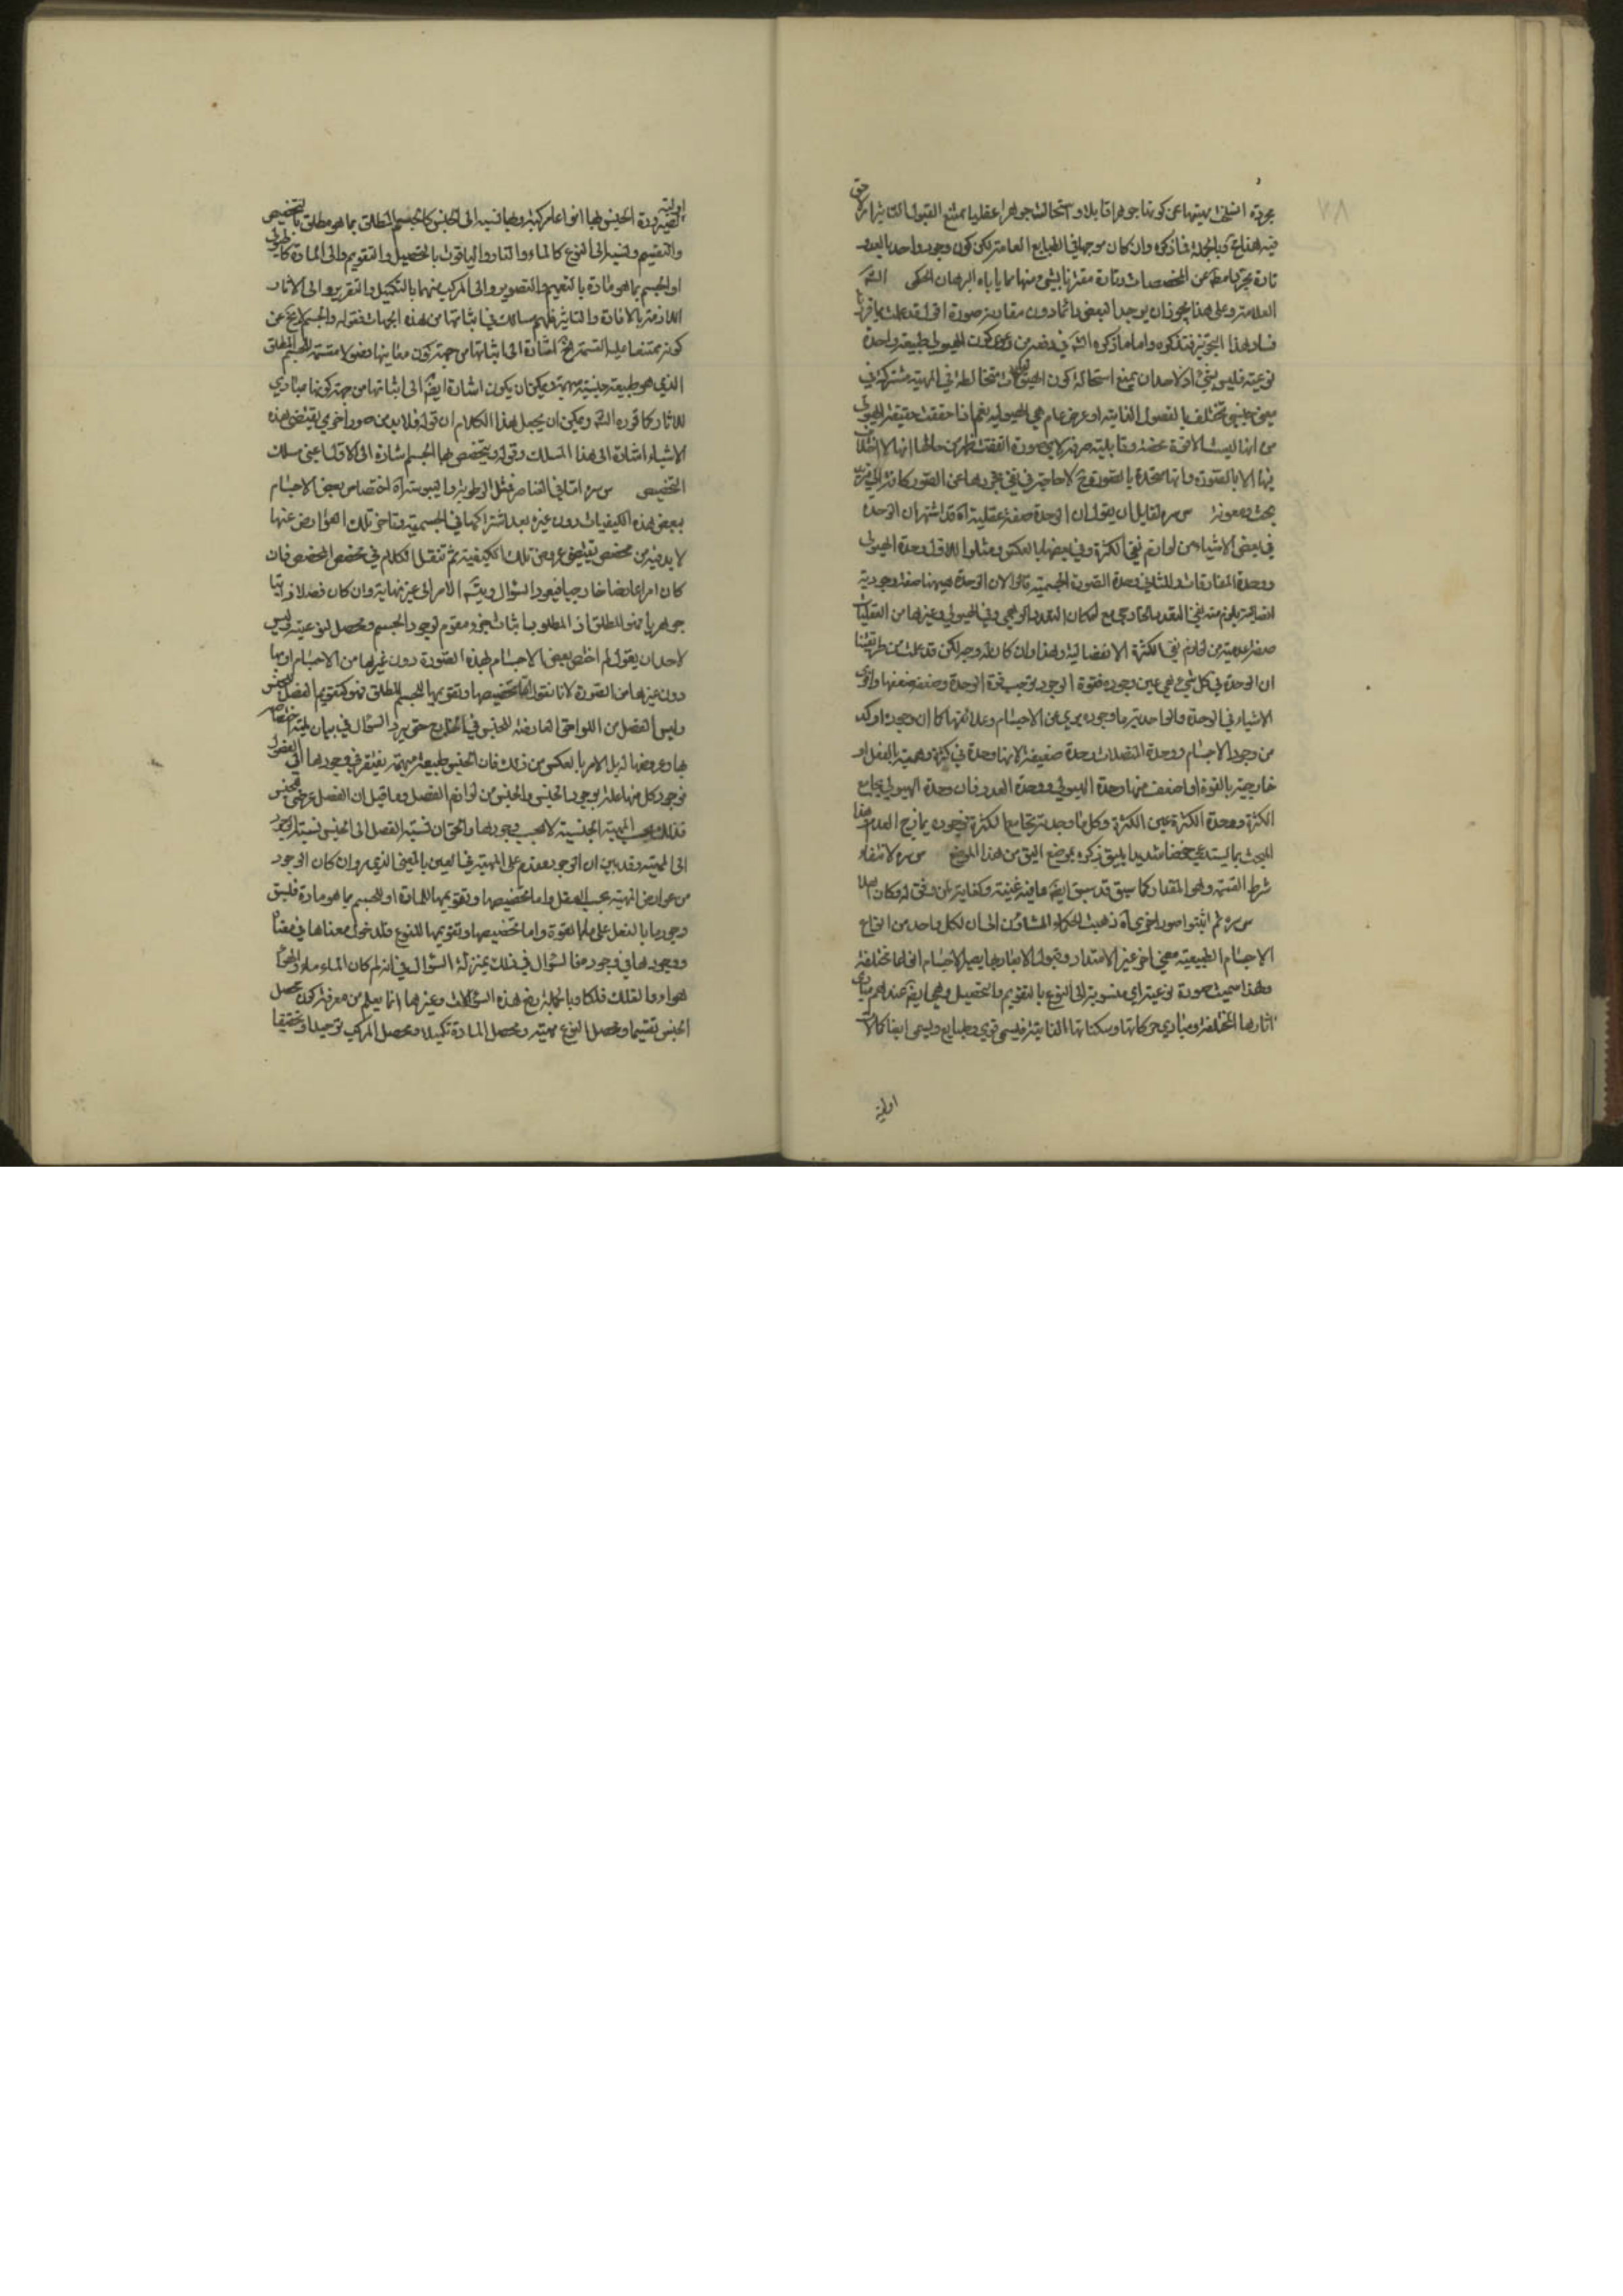 فيه هذا خ وبالجملة فما ذكره وان كان موجها في الطبايع العامة لكن كون وجود واحد بالعدد
تارة مجردا عن المخصصات وتارة مقترنا بشيء منها مما ياباه البرهان الحكمي
العلامة وعلى هذا يجوز ان يوجد البعض دائما دون مقارنة صورة اقول قد علمت
فساد هذا التجويز فتذكره واما ما ذكره في كون الهيولى طبيعة واحدة
نوعية فليس بشيء اذ لاحد ان يمنع استحالة كون متخالطة في المهية مشتركة في
معنى جنسي تختلف بالفصول الذاتية او عرض عام هي الهيولية نعم اذا حققت حقيقة الهيولى
من انها ليست الا قوة محضة وقابلية صرفة لاي صورة اتفقت
بحث ومعونة س ره لقايل ان يقول ان الوحدة صفة عقلية اه قد اشتهر ان الوحدة
في بعض الاشياء من لوازم نفي الكثرة وفي بعضها بالعكس ومثلوا للاول وحدة الهيولى
ووحدة المفارقات وللثاني وحدة الصورة الجسمية قالوا لان الوحدة ههنا صفة وجودية
صفة عدمية من لوازم نفي الكثرة الانفصالية وهذا وان كان له وجه لكن قد علمت من طريقتنا
ان الوحدة في كل شيء هي عين وجوده فقوة الوجود يوجب قوة الوحدة وضعفه ضعفها واقوى
الاشياء في الوحدة والواحدية ما وجوده بري عن الاجسام وعلائقها كما ان وجوده اوكد
من وجود الاجسام ووحدة المتصلات وحدة ضعيفة لانها وحدة في كثرة وهمية بالفعل او
خارجية بالقوة واضعف منها وحدة الهيولى ووحدة العدد فان وحدة الهيولى يجامع
الكثرة ووحدة الكثرة عين الكثرة وكل ما وحدته تجامع الكثرة فوجوده يمازج العدم وهذا
المبحث مما يستدعي خوضا شديدا يليق ذكره بموضع اليق من هذا الموضع س ره لانتفاء
شرط القسمة وهو المقدار كما سبق قد سبق ايضا ما فيه غنية وكفاية
س ره ثم اثبتوا صورا اخرى اه ذهبت الحكماء المشاؤن الى ان لكل واحد من انواع
الاجسام الطبيعية معنى اخر غير الامتداد وقبول الابعاد بها يصير الاجسام انواعا مختلفة
ولهذا سميت صورة نوعية اي منسوبة الى النوع بالتقويم والتحصيل وهي ايضا عندهم مبادي
آثارها المختلفة ومبادي حركاتها وسكناتها الذاتية فيسمى قوى وطبايع ويسمى ايضا كمالات
اولية
لصيرورة الجنس بها انواعا مركبة ولها نسبة الى الجنس كالجسم المطلق بما هو مطلق بالتخصيص
والتقسيم ونسبة الى النوع كالماء والنار والياقوت بالتحصيل والتقويم والى المادة كالهيولى
او الجسم بما هو مادة بالتتميم والتصوير والى المركب منهما بالتكميل والتقرير والى الاثار
اللازمة بالافادة والتاثير فلهم مسالك في اثباتها من هذه الجهات فقوله والجسم لا يخ عن
كونه ممتنعا عليه القسمة اشارة الى اثباتها من جهة كون مباديها فصولا مقسمة للجسم المطلق
الذي هو طبيعة جنسية مبهمة ويمكن ان يكون اشارة ايضا الى اثباتها من جهة كونها مبادي
للاثار كما قرره الش ويمكن ان يجعل هذا الكلام ان قوله فلا بد من صور اخرى يقتضي هذه
الاشياء اشارة الى هذا المسلك وقوله ويتخصص بها الجسم اشارة الى الاول اعني مسلك
التخصيص س ره اما في العناصر فمثل الرطوبة واليبوسة اه اختصاص بعض الاجسام
ببعض هذه الكيفيات دون غيره بعد اشتراكها في الجسمية وتاخر تلك العوارض عنها
لا بد فيه من مخصص يقتضي عروض تلك الكيفية ثم ننقل الكلام في مخصص المخصص فان
كان امرا عارضا خارجيا فيعود السؤال ويتسلسل الامر الى غير نهاية وان كان فصلا ذاتيا
جوهريا فهو المطلق اذ المطلوب اثبات جزء مقوم لوجود الجسم ومحصل لنوعيته وليس
لاحد ان يقول لم اختص بعض الاجسام بهذه الصورة دون غيرها من الاجسام او بها
دون غيرها من الصورة لانا نقول اما تخصيصها وتقويمها للجسم المطلق فهو كتقويم الفصل للجنس
وليس الفصل من اللواحق العارضة للجنس في الخارج حتى يرد السؤال في بيان لمية اختصاصه
بها وعروضها له بل الامر بالعكس من ذلك فان الجنس طبيعة مبهمة يفتقر في وجودها الى الفصول
فوجود كل منها علة لوجود الجنس والجنس من لوازم الفصل وما قيل ان الفصل عرضي للجنس
فذلك بحسب المهية الجنسية لا بحسب وجودها والحق ان نسبة الفصل الى الجنس نسبة الوجود
الى المهية وقد بين ان الوجود مقدم على المهية في العين بالمعنى الذي مر وان كان الوجود
من عوارض المهية بحسب العقل واما تخصيصها وتقويمها للمادة او للجسم بما هو مادة فليس
وجودها بالفعل على ما بالقوة واما تخصيصها وتقويمها للنوع فلدخول معناها في معناه
ووجودها في وجوده فالسؤال في ذلك بمنزلة السؤال في انه لم كان الماء ماء والهواء
هواء والفلك فلكا وبالجملة رفع هذه السؤالات وغيرها انما يعلم من معرفة كون محصل
الجنس تقسيما ومحصل النوع مهية ومحصل المادة تكميلا ومحصل المركب توحيدا وتحقيقا